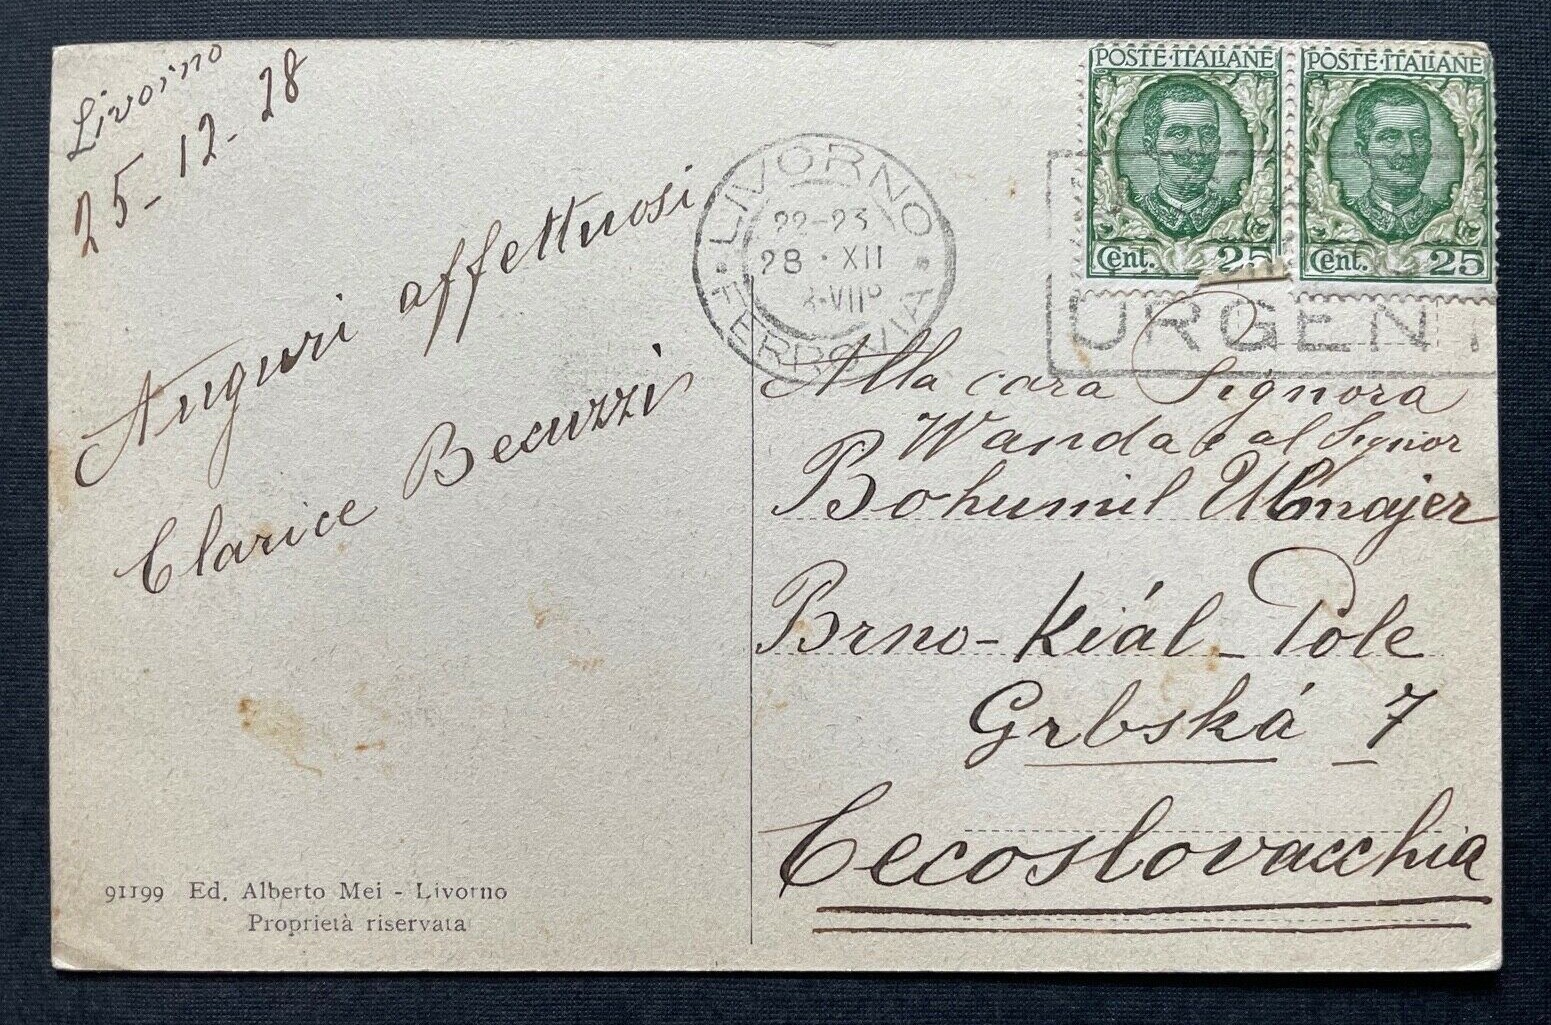 Livorno
25-12-28
Auguri affettuosi
Clarice Becuzzi
91199 Ed. Alberto Mei - Livorno
Proprietà riservata
POSTE·ITALIANE
Cent. 25
POSTE·ITALIANE
Cent. 25
LIVORNO
22-23
28·XII
VII
FERROVIA
URGENT
Alla cara Signora
Wanda e al Signor
Bohumil Ulmajer
Brno-Kiál-Pole
Grbská 7
Cecoslovacchia